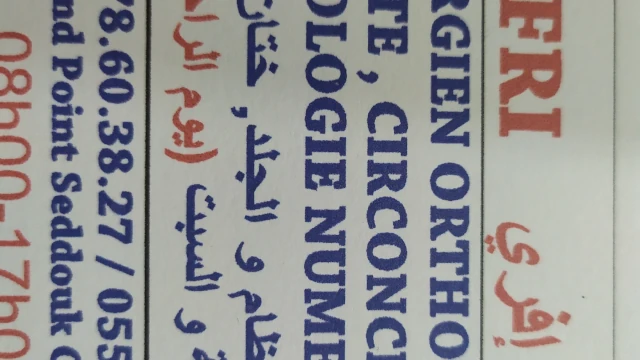 FRI إفري
RGIEN ORTHO
TE, CIRCONCI
OLOGIE NUME
ظام و الجلد, ختان
ة و السبت (يوم الراح
78.60.38.27 / 055
nd Point Seddouk O
08h00-17h0